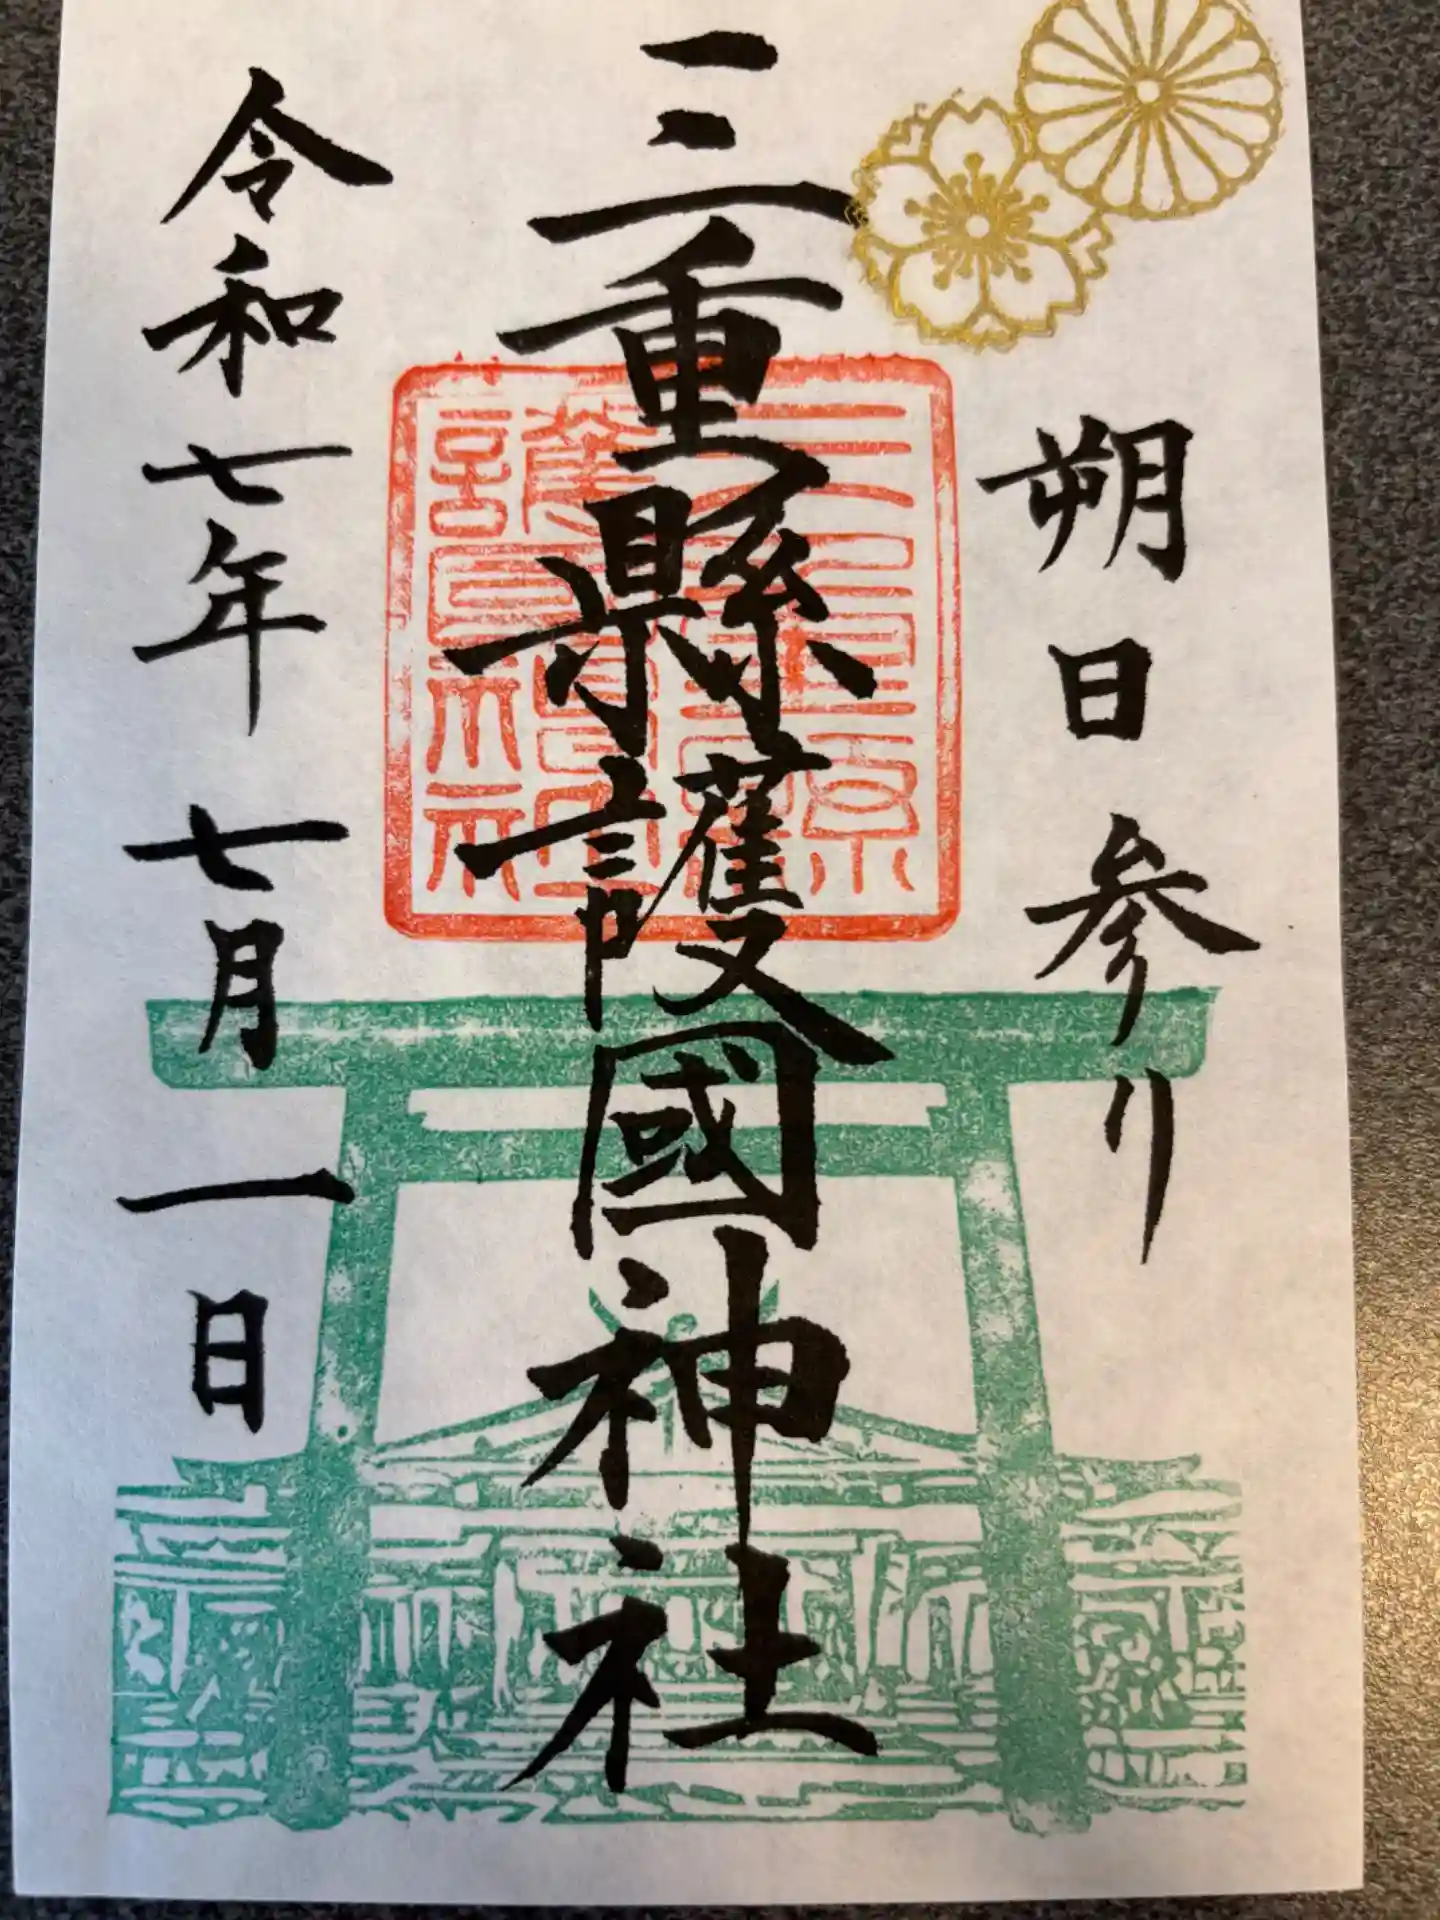 朔日参り
三重縣護國神社
三重縣護國神社
令和七年七月一日